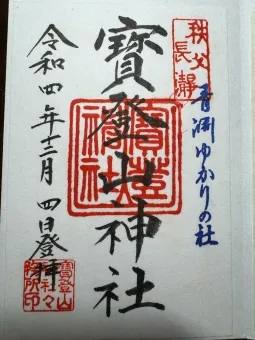 秩父
長瀞
青淵ゆかりの社
寶登山神社
寶登山
神社
令和四年十二月四日登拝
寶登山
神社々
務所印